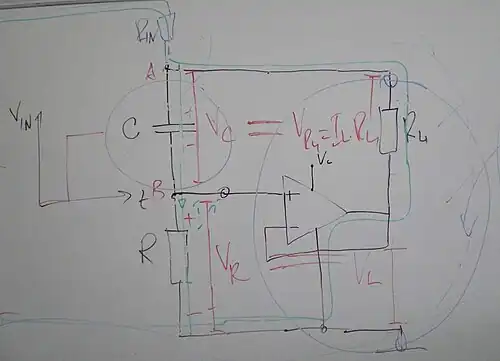 RIN
A
VIN
C
VC = VRL1 = IL · RL1
RL1
VL
t
B
+
+
R
VR
VL